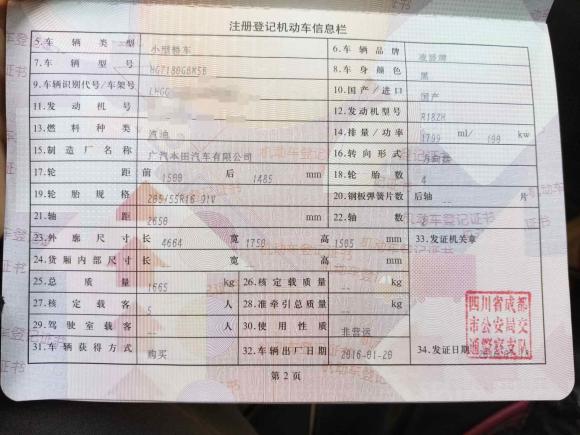 注册登记机动车信息栏
5.车辆类型 小型轿车 6.车辆品牌
7.车辆型号 8.车身颜色 黑
9.车辆识别代号/车架号 LHGG 10.国产/进口 国产
11.发动机号 12.发动机型号 R18ZH
13.燃料种类 汽油 14.排量/功率 1799 ml/ kw
15.制造厂名称 广汽本田汽车有限公司 16.转向形式 方向盘
17.轮距 前 1500 后 1485 mm 18.轮胎数 4
19.轮胎规格 205/55R16 91V 20.钢板弹簧片数 后轴 -- 片
21.轴距 2650 mm 22.轴数 2
23.外廓尺寸 长 4664 宽 1750 高 1505 mm 33.发证机关章
24.货厢内部尺寸 长 -- 宽 -- 高 -- mm
25.总质量 1665 kg 26.核定载质量 -- kg
27.核定载客 5 人 28.准牵引总质量 -- kg
29.驾驶室载客 -- 人 30.使用性质 非营运
31.车辆获得方式 购买 32.车辆出厂日期 2016-01-20 34.发证日期
四川省成都
市公安局交
通警察支队
第2页